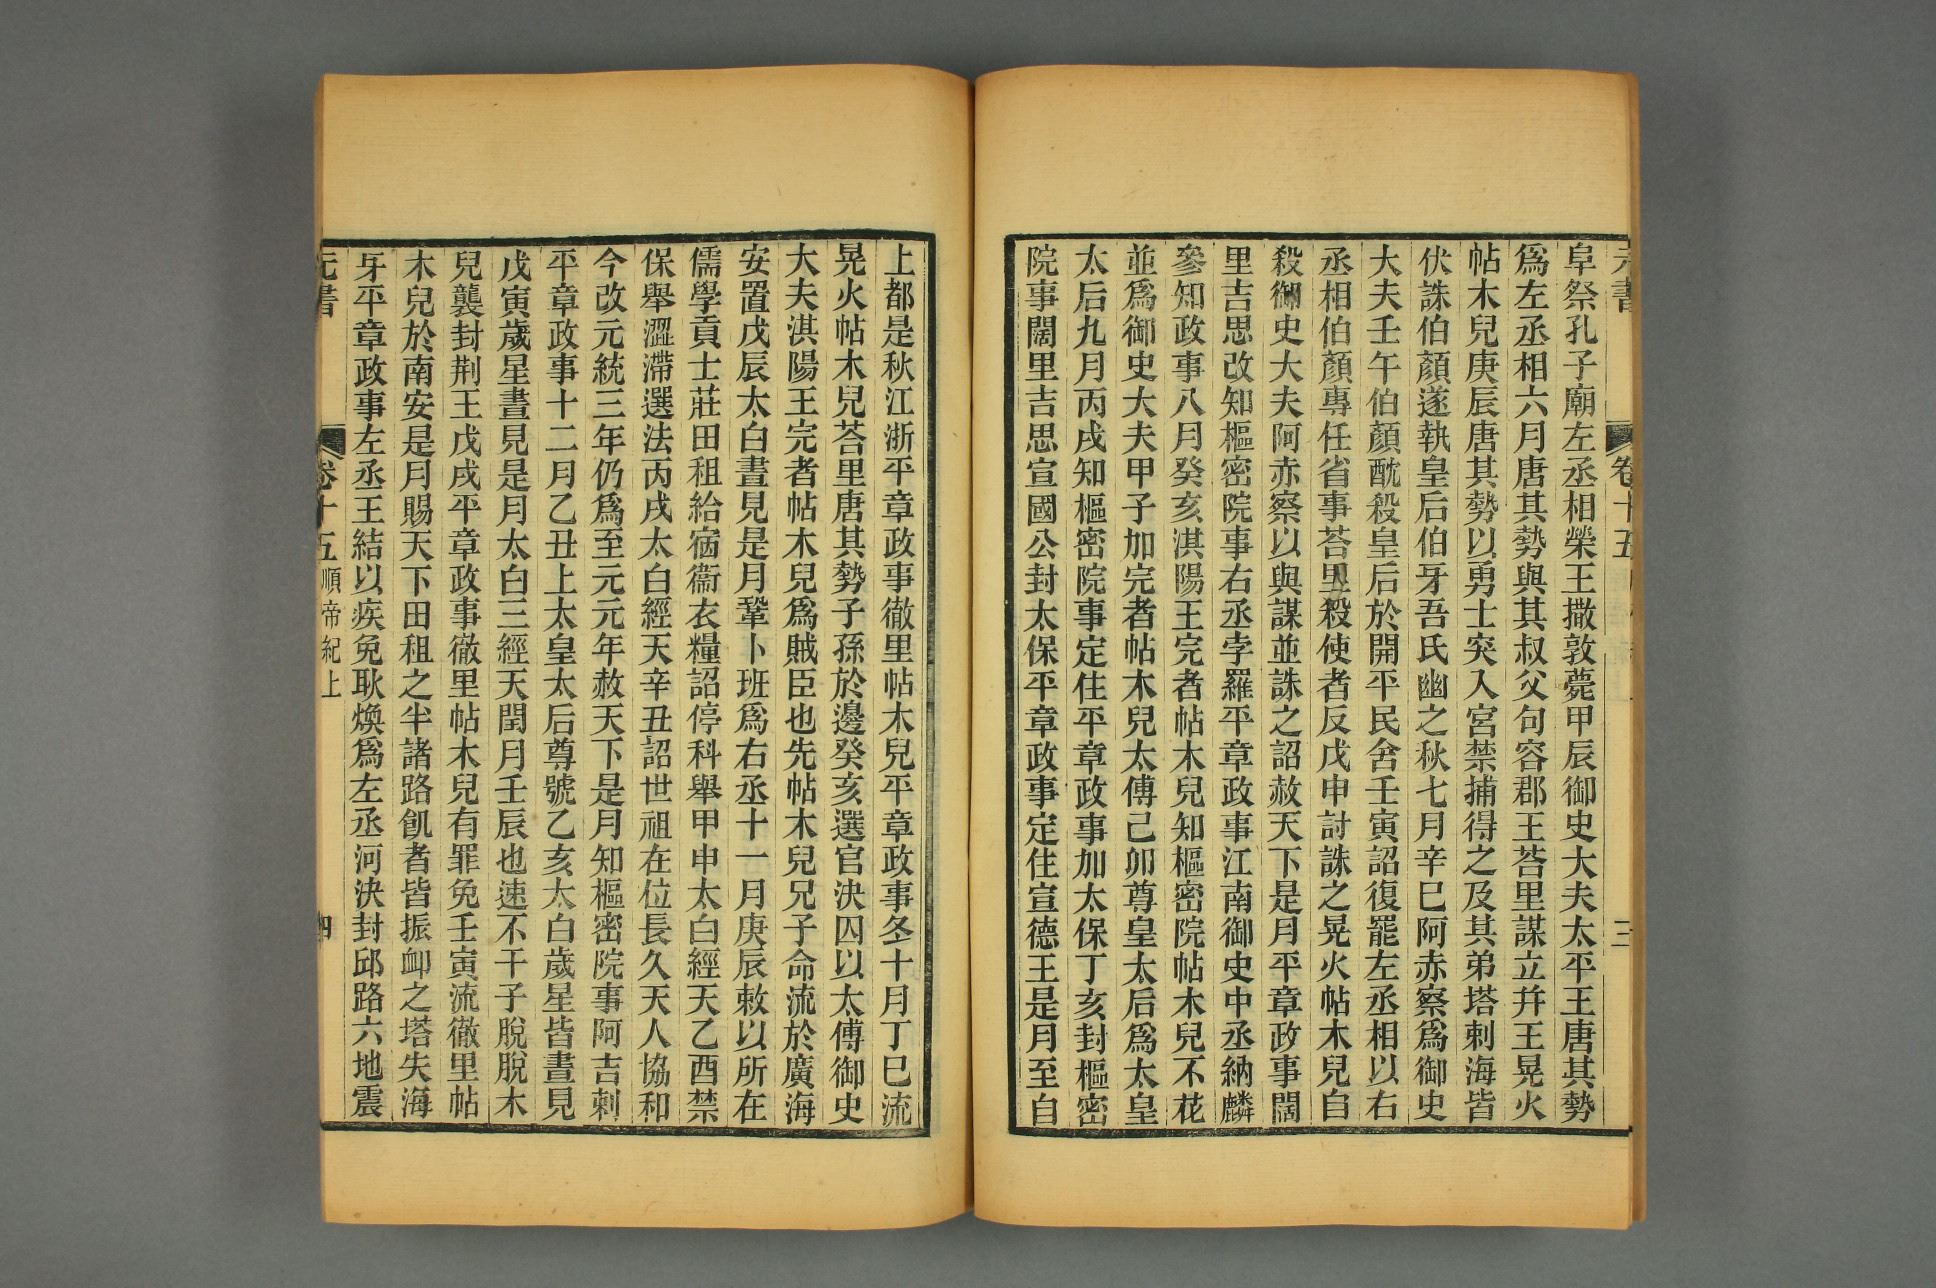 阜祭孔子廟左丞相榮王撒敦薨甲辰御史大夫太平王唐其勢
爲左丞相六月唐其勢與其叔父句容郡王荅里謀立幷王晃火
帖木兒庚辰唐其勢以勇士突入宮禁捕得之及其弟塔剌海皆
伏誅伯顏遂執皇后伯牙吾氏幽之秋七月辛巳阿赤察爲御史
大夫壬午伯顏酖殺皇后於開平民舍壬寅詔復罷左丞相以右
丞相伯顏專任省事荅里殺使者反戊申討誅之晃火帖木兒自
殺御史大夫阿赤察以與謀並誅之詔赦天下是月平章政事闊
里吉思改知樞密院事右丞孛羅平章政事江南御史中丞納麟
參知政事八月癸亥淇陽王完者帖木兒知樞密院帖木兒不花
並爲御史大夫甲子加完者帖木兒太傅己卯尊皇太后爲太皇
太后九月丙戌知樞密院事定住平章政事加太保丁亥封樞密
院事闊里吉思宣國公封太保平章政事定住宣德王是月至自
上都是秋江浙平章政事徹里帖木兒平章政事冬十月丁巳流
晃火帖木兒荅里唐其勢子孫於邊癸亥選官決囚以太傅御史
大夫淇陽王完者帖木兒爲賊臣也先帖木兒兄子命流於廣海
安置戊辰太白晝見是月鞏卜班爲右丞十一月庚辰敕以所在
儒學貢士莊田租給宿衞衣糧詔停科舉甲申太白經天乙酉禁
保舉澀滯選法丙戌太白經天辛丑詔世祖在位長久天人協和
今改元統三年仍爲至元元年赦天下是月知樞密院事阿吉剌
平章政事十二月乙丑上太皇太后尊號乙亥太白歲星皆晝見
戊寅歲星晝見是月太白三經天閏月壬辰也速不干子脫脫木
兒襲封荆王戊戌平章政事徹里帖木兒有罪免壬寅流徹里帖
木兒於南安是月賜天下田租之半諸路飢者皆振卹之塔失海
牙平章政事左丞王結以疾免耿煥爲左丞河決封邱路六地震
元書 卷十五 順帝紀上 四